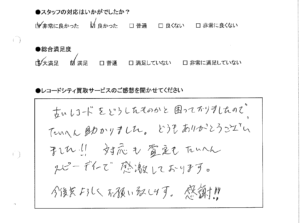 ●スタッフの対応はいかがでしたか?
☑非常に良かった ☑良かった □普通 □良くない □非常に良くない
●総合満足度
☑大満足 ☑満足 □普通 □満足していない □非常に満足していない
●レコードシティ買取サービスのご感想を聞かせてください
古いレコードをどうしたものかと困っておりましたので、
たいへん助かりました。どうもありがとうござい
ました!! 対応も査定もたいへん
スピーディーで感激しております。
今後共よろしくお願い致します。感謝!!